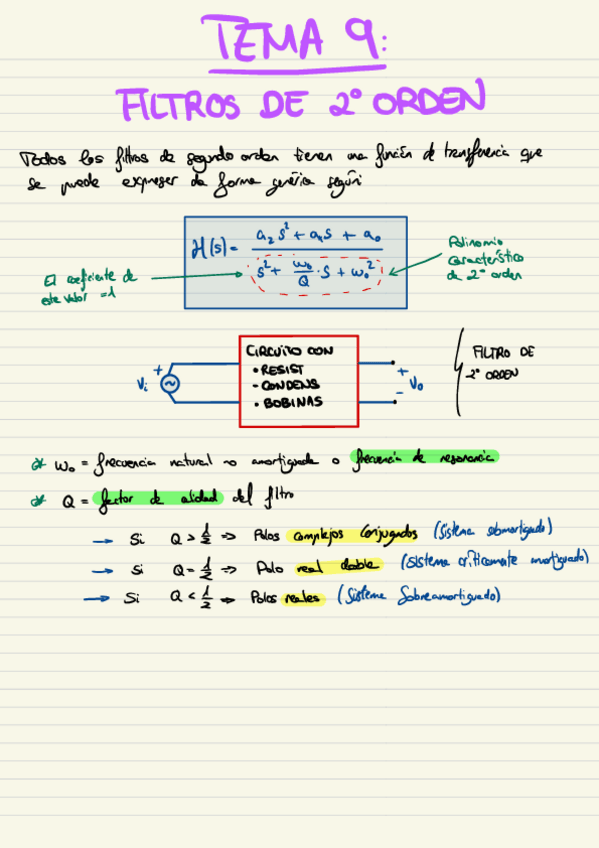 TEMA 9:
FILTROS DE 2º ORDEN
Todos los filtros de segundo orden tienen una función de transferencia que
se puede expresar de forma genérica según:
H(s) = (a₂s² + a₁s + a₀) / (s² + ω₀/Q · s + ω₀²)
El coeficiente de
este valor = 1
Polinomio
característico
de 2º orden
Vi
+
~
CIRCUITO CON
• RESIST
- CONDENS
• BOBINAS
+
-
Vo
FILTRO DE
2º ORDEN
ω₀ = frecuencia natural no amortiguada o frecuencia de resonancia
Q = factor de calidad del filtro
→ Si Q > 1/2 ⇒ Polos complejos conjugados (Sistema submortiguado)
→ Si Q = 1/2 ⇒ Polo real doble (Sistema críticamente amortiguado)
→ Si Q < 1/2 ⇒ Polos reales (Sistema Sobreamortiguado)